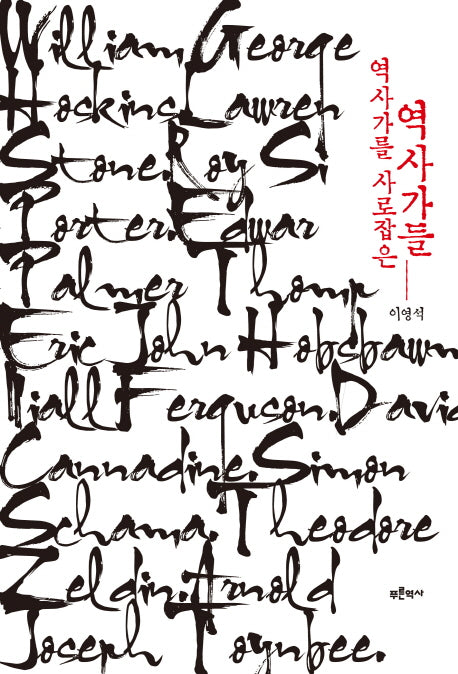 William George
Hoskins. Lawren
Stone. Roy Si
Porter. Edwar
Palmer Thomp
Eric John Hobsbawm
Niall Ferguson. David
Cannadine. Simon
Schama. Theodore
Zeldin. Arnold
Joseph Toynbee.
역사가를 사로잡은
역사가들
이영석
푸른역사